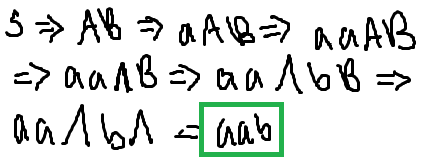 S ⇒ AB ⇒ aAB ⇒ aaAB
⇒ aaΛB ⇒ aaΛbB ⇒
aaΛbΛ = aab